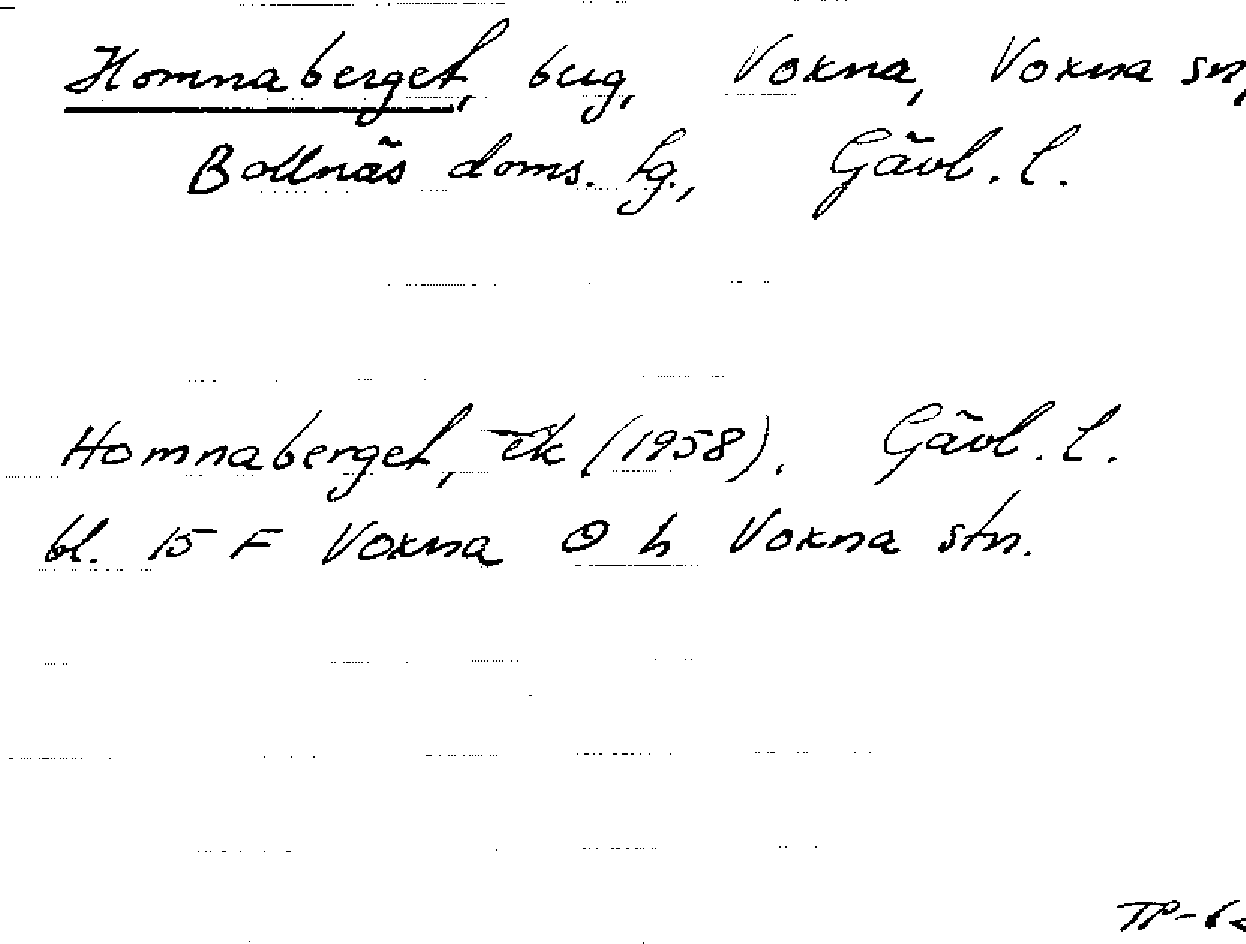 Homnaberget, berg, Voxna, Voxna sn,
Bollnäs doms. hg., Gävl. l.
Homnaberget, ek (1958). Gävl. l.
bl. 15 F Voxna O h Voxna stn.
TP-62